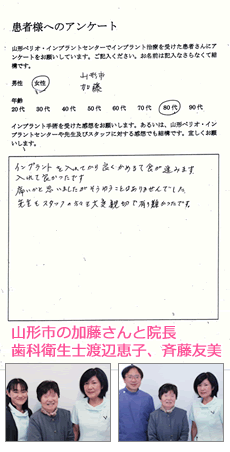 患者様へのアンケート
山形ペリオ・インプラントセンターでインプラント治療を受けた患者さんにア
ンケートをお願いしています。ご記入ください。お名前は記入なさらなくて結
構です。
山形市
男性 女性 加藤
年齢
20代 30代 40代 50代 60代 70代 80代 90代
インプラント手術を受けた感想をお願いします。あるいは、山形ペリオ・イン
プラントセンターや先生及びスタッフに対する感想でも結構です。宜しくお願
いします。
インプラントを入れてから良くかめるて食が進みます
入れて良かったです
痛いかと思いましたがそうゆうことはありませんでした
先生もスタッフの方も大変親切で有り難かったです。
山形市の加藤さんと院長
歯科衛生士渡辺恵子、斉藤友美